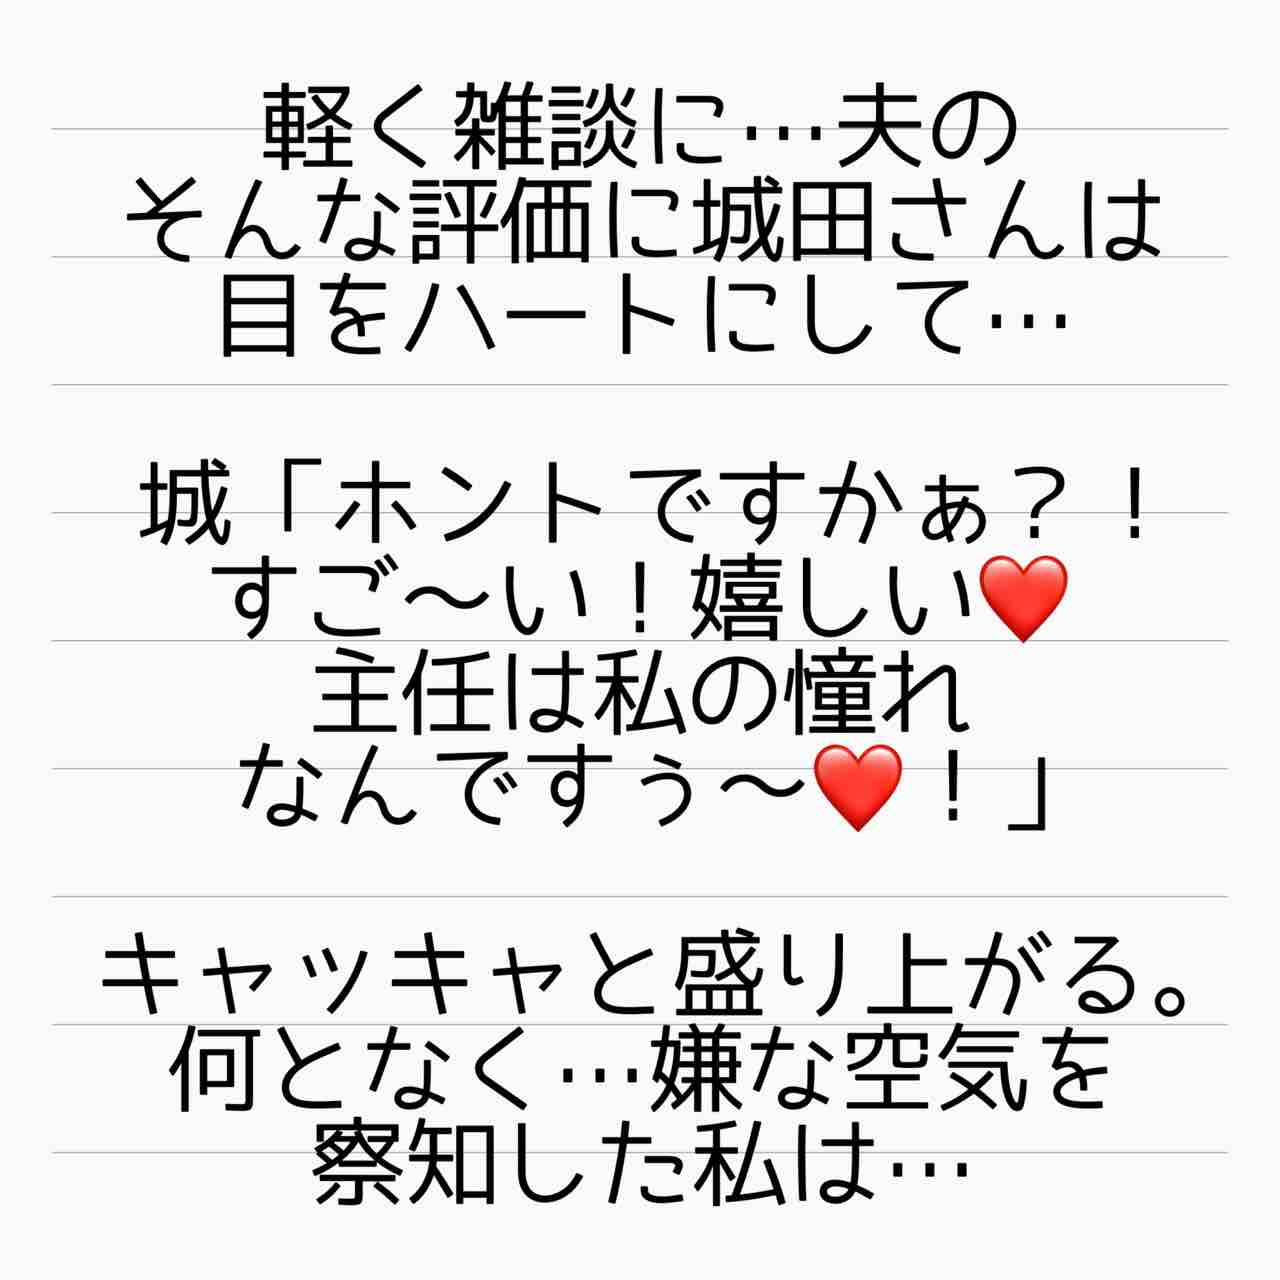 軽く雑談に…夫の
そんな評価に城田さんは
目をハートにして…
城「ホントですかぁ？！
すご〜い！嬉しい❤️
主任は私の憧れ
なんですぅ〜❤️！」
キャッキャと盛り上がる。
何となく…嫌な空気を
察知した私は…